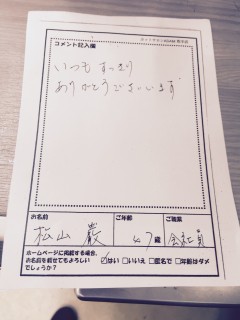 コメント記入欄
いつもすっきり
ありがとうございます
お名前
ご年齢
ご職業
松山 巖
47歳
会社員
ホームページに掲載する場合、
お名前を載せてもよろしい
でしょうか?
☑はい □いいえ □匿名で □年齢はダメ